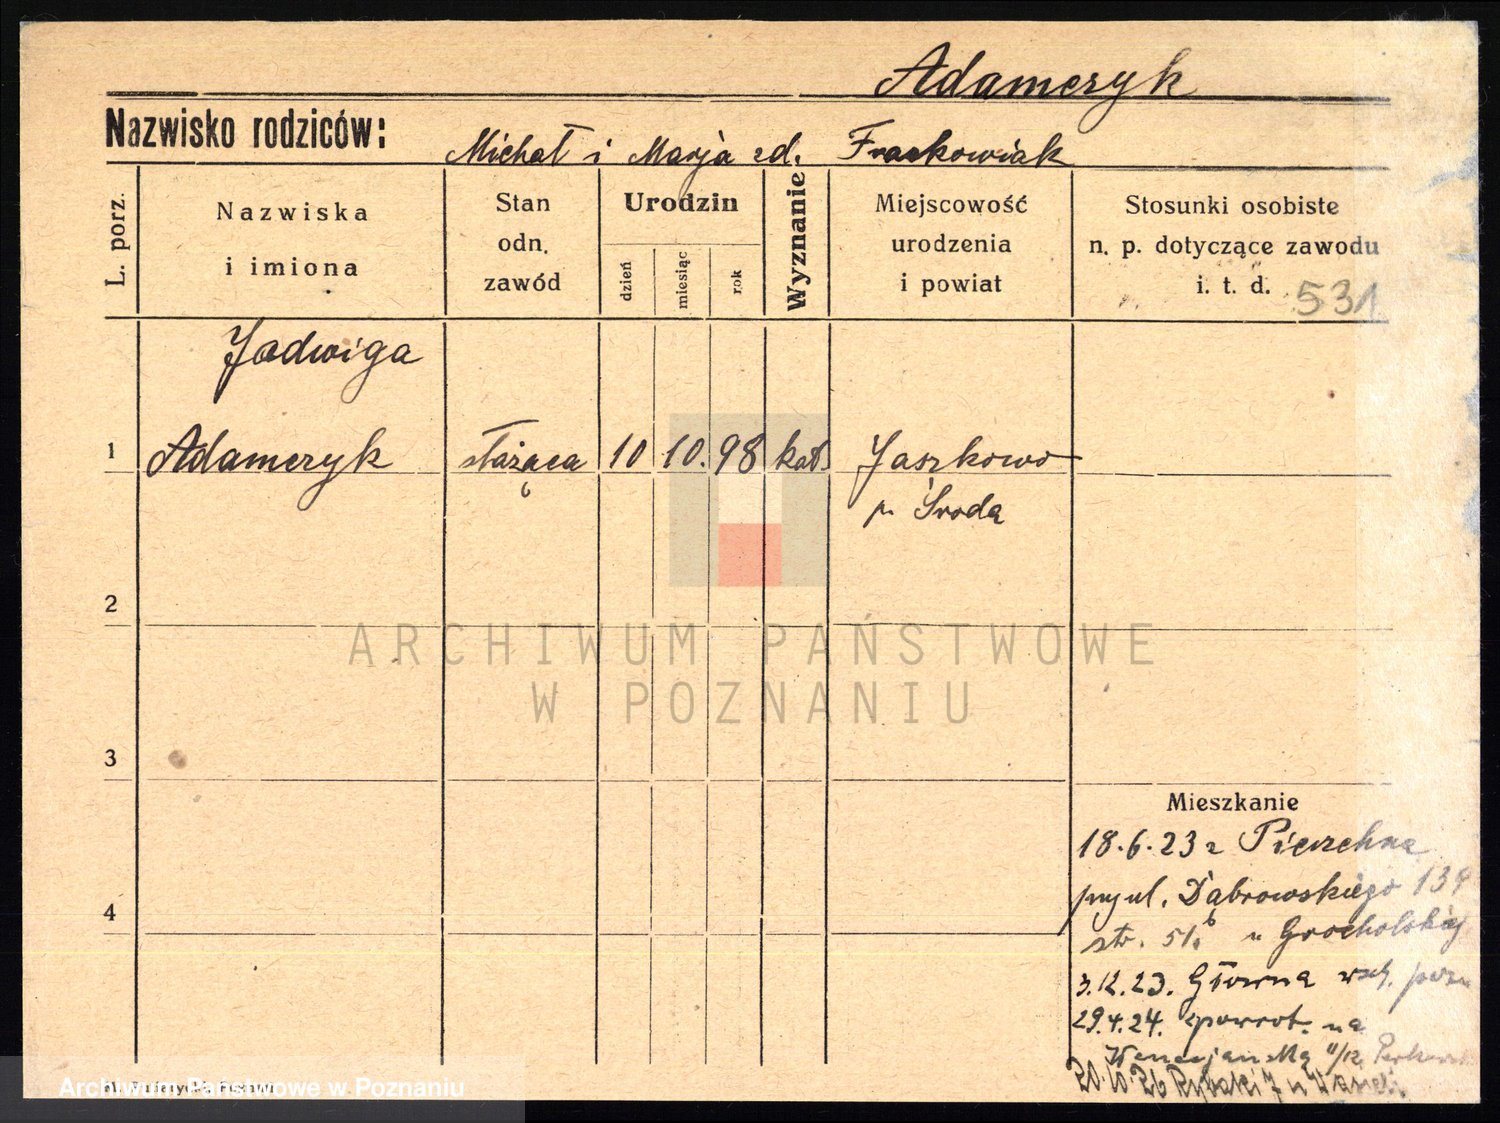 Adamczyk
Nazwisko rodziców:
Michał i Marja zd. Frackowiak
L. porz.
Nazwiska
i imiona
Stan
odn.
zawód
Urodzin
dzień
miesiąc
rok
Wyznanie
Miejscowość
urodzenia
i powiat
Stosunki osobiste
n. p. dotyczące zawodu
i. t. d.
531
Jadwiga
1 Adamczyk służąca 10 10. 98 kat. Jaszkowo
p. Środa
2
ARCHIWUM PAŃSTWOWE
W POZNANIU
3
Mieszkanie
18.6.23 z Pierzchna
przy ul. Dąbrowskiego
4
str. u Grocholskiej
3.12.23. Główna
29.4.24. powrot. na
20.10.26 Rybaki 7 u
Archiwum Państwowe w Poznaniu